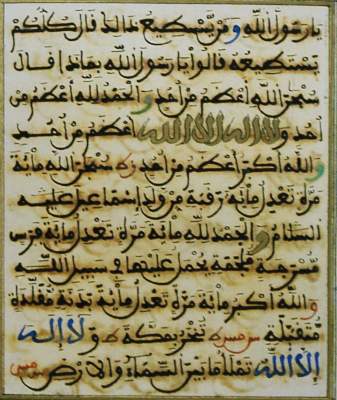 يا رسول الله ومن يستطيع ذلك قال كلكم
يستطيعه قالوا يا رسول الله بماذا قال
سبحن الله أعظم من أحد والحمد لله أعظم من
أحد ولا إله إلا الله أعظم من أحد
والله أكبر أعظم من أحد سبحن الله مائة
مرة تعدل مائة رقبة من ولد إسماعيل عليه
السلام والحمد لله مائة مرة تعدل مائة فرس
مسرجة ملجمة يحمل عليها في سبيل الله
والله أكبر مائة مرة تعدل مائة بدنة مقلدة
متقبلة تنحر بمكة ولا إله
إلا الله تملأ ما بين السماء والأرض